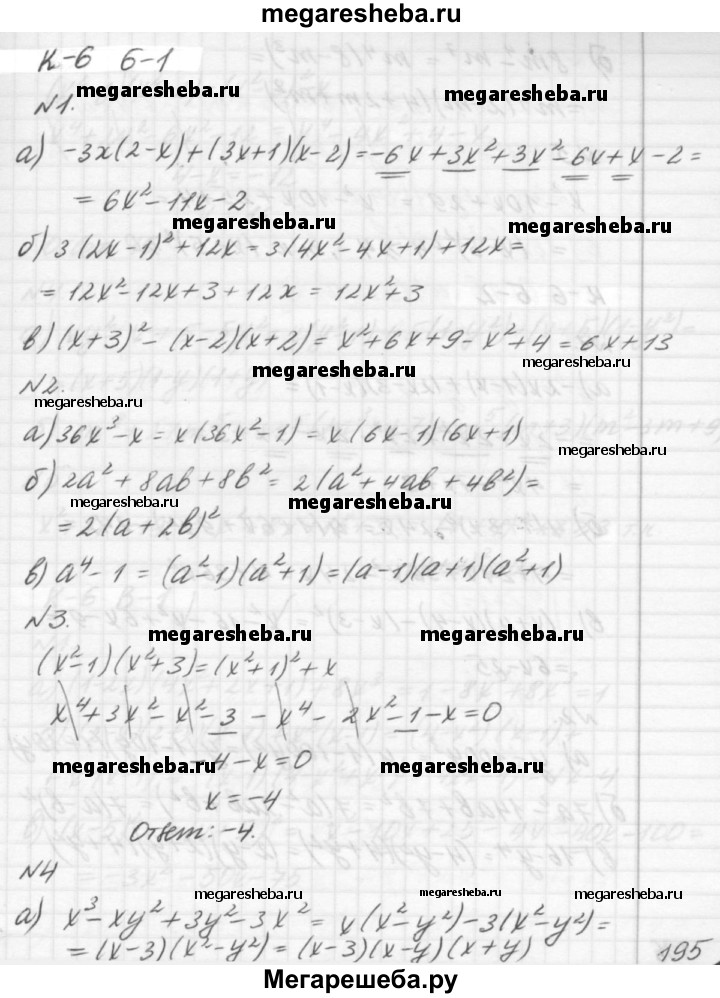 megaresheba.ru
К-6 Б-1
megaresheba.ru megaresheba.ru
№1.
а) -3x(2-x)+(3x+1)(x-2)=-6x+3x²+3x²-6x+x-2=
= 6x²-11x-2
megaresheba.ru megaresheba.ru
б) 3(2x-1)²+12x=3(4x²-4x+1)+12x=
= 12x²-12x+3+12x = 12x²+3
в) (x+3)²-(x-2)(x+2)= x²+6x+9-x²+4=6x+13
megaresheba.ru megaresheba.ru
№2.
megaresheba.ru
а) 36x³-x=x(36x²-1)=x(6x-1)(6x+1)
megaresheba.ru
б) 2a²+8ab+8b²= 2(a²+4ab+4b²)=
megaresheba.ru megaresheba.ru
=2(a+2b)²
в) a⁴-1 = (a²-1)(a²+1)=(a-1)(a+1)(a²+1)
№3.
megaresheba.ru megaresheba.ru
(x²-1)(x²+3)=(x²+1)²+x
x⁴+3x²-x²-3-x⁴-2x²-1-x=0
-4-x=0
megaresheba.ru megaresheba.ru
x=-4
Ответ: -4.
№4
megaresheba.ru megaresheba.ru megaresheba.ru
а) x³-xy²+3y²-3x²= x(x²-y²)-3(x²-y²)=
=(x-3)(x²-y²)=(x-3)(x-y)(x+y)
195
Мегарешеба.ру